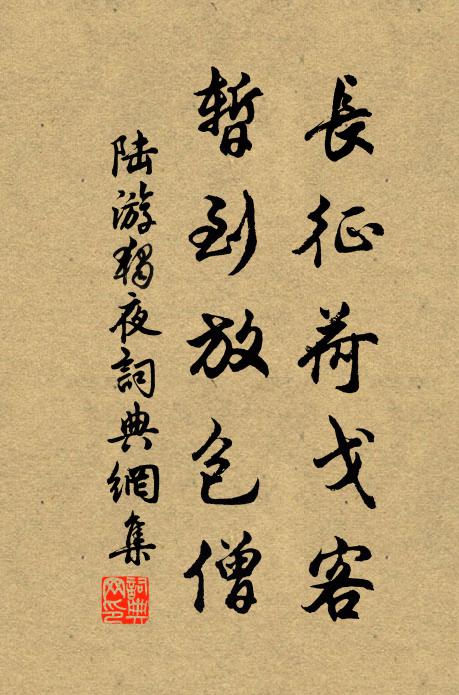 長征荷戈客
暫到放包僧
陆游獨夜詞典網集
詞典网印